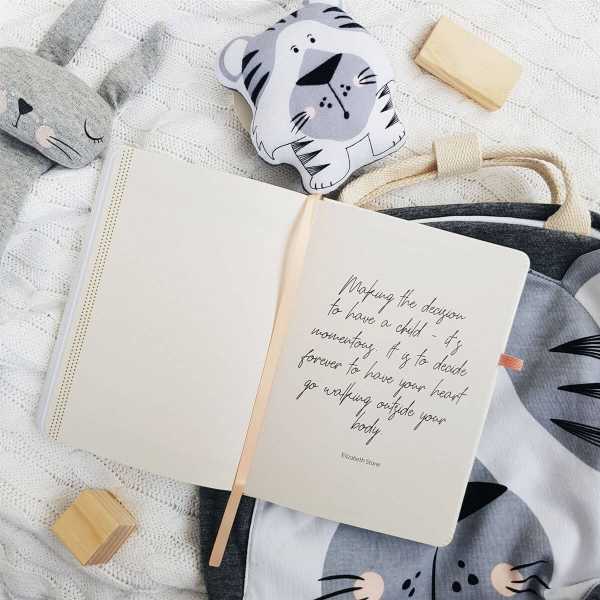 Making the decision
to have a child - it's
momentous. It is to decide
forever to have your heart
go walking outside your
body.
Elizabeth Stone